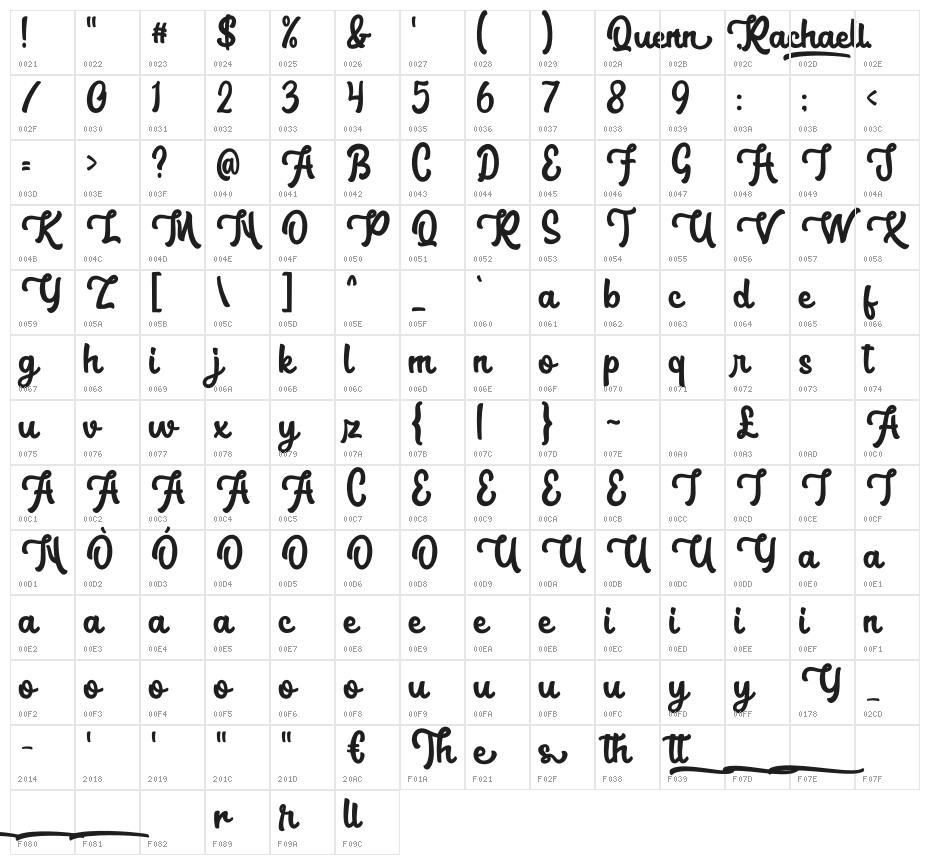 ! " # $ % & ' ( ) Quenn Rachaell.
0021 0022 0023 0024 0025 0026 0027 0028 0029 002A 002B 002C 002D 002E
/ 0 1 2 3 4 5 6 7 8 9 : ; <
002F 0030 0031 0032 0033 0034 0035 0036 0037 0038 0039 003A 003B 003C
= > ? @ A B C D E F G H I J
003D 003E 003F 0040 0041 0042 0043 0044 0045 0046 0047 0048 0049 004A
K L M N O P Q R S T U V W X
004B 004C 004D 004E 004F 0050 0051 0052 0053 0054 0055 0056 0057 0058
Y Z [ \ ] ^ _ ` a b c d e f
0059 005A 005B 005C 005D 005E 005F 0060 0061 0062 0063 0064 0065 0066
g h i j k l m n o p q r s t
0067 0068 0069 006A 006B 006C 006D 006E 006F 0070 0071 0072 0073 0074
u v w x y z { | } ~ £ A
0075 0076 0077 0078 0079 007A 007B 007C 007D 007E 00A0 00A3 00AD 00C0
A A A A A C E E E E I I I I
00C1 00C2 00C3 00C4 00C5 00C7 00C8 00C9 00CA 00CB 00CC 00CD 00CE 00CF
N Ò Ó O O O O U U U U Y a a
00D1 00D2 00D3 00D4 00D5 00D6 00D8 00D9 00DA 00DB 00DC 00DD 00E0 00E1
a a a a c e e e e i i i i n
00E2 00E3 00E4 00E5 00E7 00E8 00E9 00EA 00EB 00EC 00ED 00EE 00EF 00F1
o o o o o o u u u u y y Y _
00F2 00F3 00F4 00F5 00F6 00F8 00F9 00FA 00FB 00FC 00FD 00FF 0178 02CD
– ' ' " " € Th e s th tt
2014 2018 2019 201C 201D 20AC F01A F021 F02F F038 F039 F07D F07E F07F
r r ll
F080 F081 F082 F089 F09A F09C